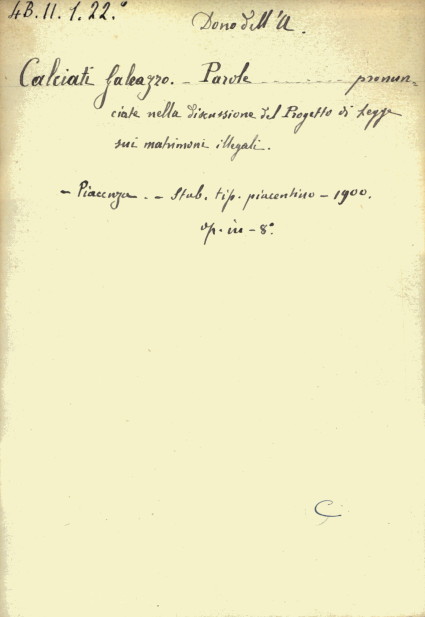 4B.11.1.22.°
Dono dell'A.
Calciati Galeazzo. - Parole ............ pronun=
ciate nella discussione del Progetto di Legge
sui matrimoni illegali.
- Piacenza. - Stab. tip. piacentino - 1900.
op. in - 8°.
C